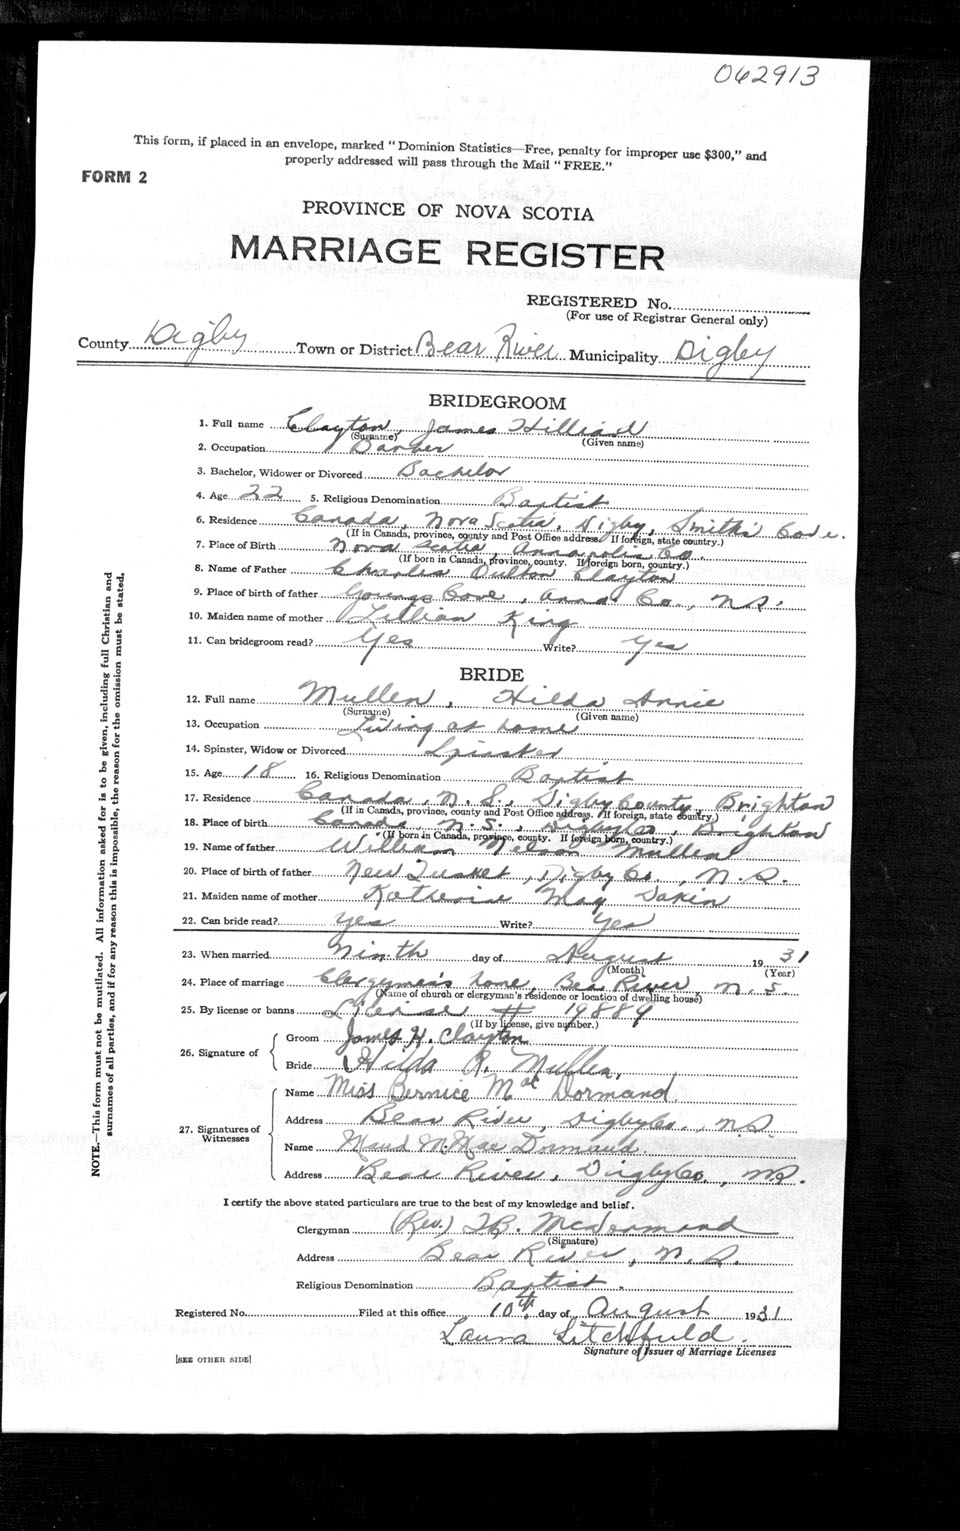 062913
This form, if placed in an envelope, marked "Dominion Statistics—Free, penalty for improper use $300," and
properly addressed will pass through the Mail "FREE."
FORM 2
PROVINCE OF NOVA SCOTIA
MARRIAGE REGISTER
REGISTERED No.
(For use of Registrar General only)
County Digby Town or District Bear River Municipality Digby
BRIDEGROOM
1. Full name Clayton, James Hilliard
(Surname) (Given name)
2. Occupation Barber
3. Bachelor, Widower or Divorced Bachelor
4. Age 22 5. Religious Denomination Baptist
6. Residence Canada, Nova Scotia, Digby, Smith's Cove.
(If in Canada, province, county and Post Office address. If foreign, state country.)
7. Place of Birth Nova Scotia, Annapolis Co.
(If born in Canada, province, county. If foreign born, country.)
8. Name of Father Charles Clayton
9. Place of birth of father Cove, Anna Co., N.S.
10. Maiden name of mother Lillian King
11. Can bridegroom read? Yes Write? Yes
BRIDE
12. Full name Mullen, Hilda Annie
(Surname) (Given name)
13. Occupation Living at home
14. Spinster, Widow or Divorced Spinster
15. Age 18 16. Religious Denomination Baptist
17. Residence Canada, N.S., Digby County, Brighton
(If in Canada, province, county and Post Office address. If foreign, state country.)
18. Place of birth Canada, N.S., Digby Co, Brighton
(If born in Canada, province, county. If foreign born, country.)
19. Name of father William Nelson Mullen
20. Place of birth of father New Tusket, Digby Co., N.S.
21. Maiden name of mother Katherine May Sakin
22. Can bride read? Yes Write? Yes
23. When married Ninth day of August 1931
(Month) (Year)
24. Place of marriage Clergyman's home, Bear River, N.S.
(Name of church or clergyman's residence or location of dwelling house)
25. By license or banns License # 19889
(If by license, give number.)
26. Signature of
Groom James H. Clayton
Bride Hilda A. Mullen.
27. Signatures of
Witnesses
Name Miss Bernice Mac Dormand
Address Bear River, Digby Co., N.S.
Name Maud M. Mac Dormand.
Address Bear River, Digby Co., N.S.
I certify the above stated particulars are true to the best of my knowledge and belief.
Clergyman (Rev.) McDormand
(Signature)
Address Bear River, N.S.
Religious Denomination Baptist.
Registered No. Filed at this office 10th day of August 1931
Laura Litchfield.
Signature of Issuer of Marriage Licenses
[SEE OTHER SIDE]
NOTE.—This form must not be mutilated. All information asked for is to be given, including full Christian and
surnames of all parties, and if for any reason this is impossible, the reason for the omission must be stated.